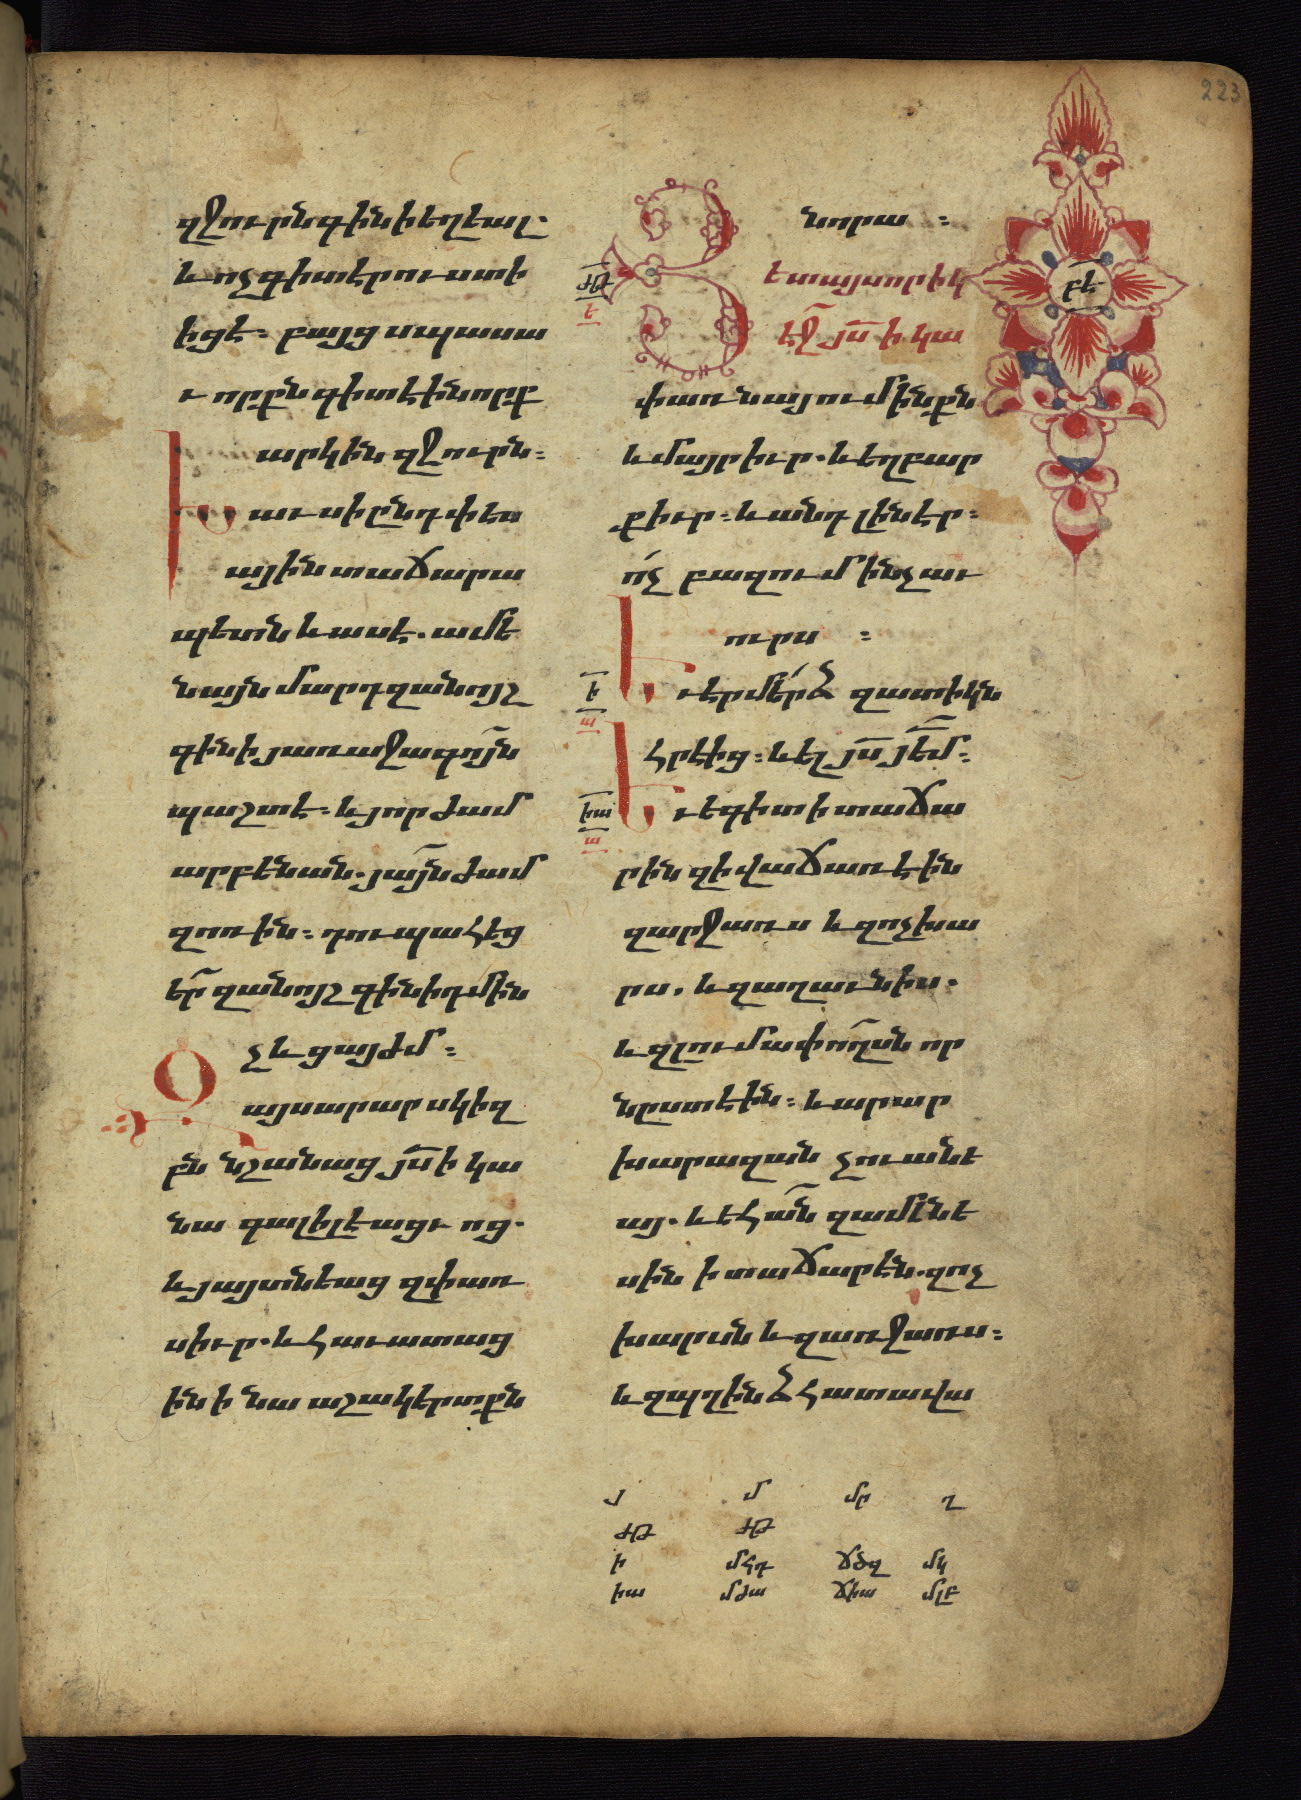 223
զջուրն գինի եղեալ.
և ոչ գիտէր ուստի
իցէ։ բայց սպասա
ւորքն գիտէին որք
արկին զջուրն։
Խաւսի ընդ փեսա
ային տաճարա
պետն և ասէ. ամե
նայն մարդ զանոյշ
գինի յառաջագոյն
պաշտէ։ և յորժամ
արբենան. յայնժամ
զոռին։ դու պահեց
եր զանոյշ գինիդ մին
չև ցայժմ։
Զայս արար սկիզ
բն նշանաց յս ի կա
նա գալիլեացւոց.
և յայտնեաց զփառ
սիւր. և հաւատաց
ին ի նա աշակերտքն
նորա։
բե
ժթ
է
Յետ այսորիկ
էջ յս ի կա
փառնայում ինքն
և մայր իւր. և եղբար
քիւր։ և անդ լինէր։
ոչ բազում ինչ աւ
ուրս։
ի
ա
Եւ էր մերձ զատիկն
հրէից։ և ել յս յեմ։
իա
ա
Եւ եգիտ ի տաճա
րին զի վաճառէին
զարջառս և զոչխա
րս, և զաղաւնիս.
և զլումափոխսն որ
նըստէին։ և արար
խարազան չուանե
այ. և եհան զամենե
սին ի տաճարէն. զոչ
խարսն և զառջառս։
և զպղինձ հատավա
Յ Մ Մր Ղ
ժթ ժթ
ի մհդ ճծզ մկ
իա մժա ճիա մլբ